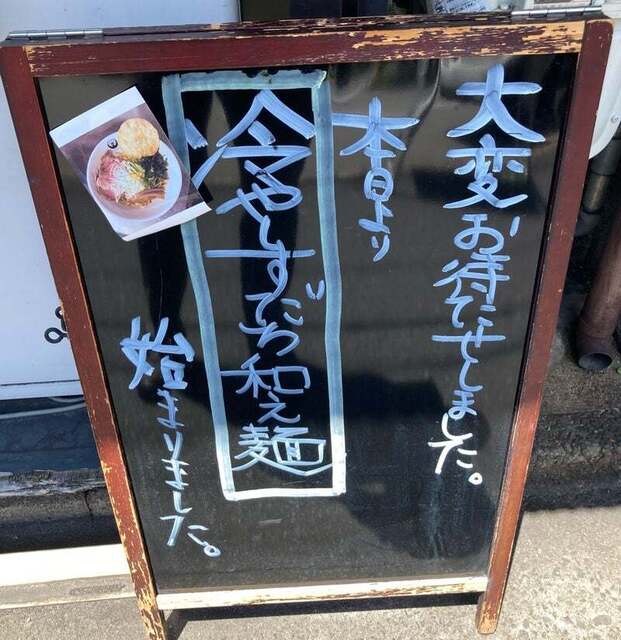 大変お待たせしました。
本日より
冷やしすだち和え麺
始まりました。